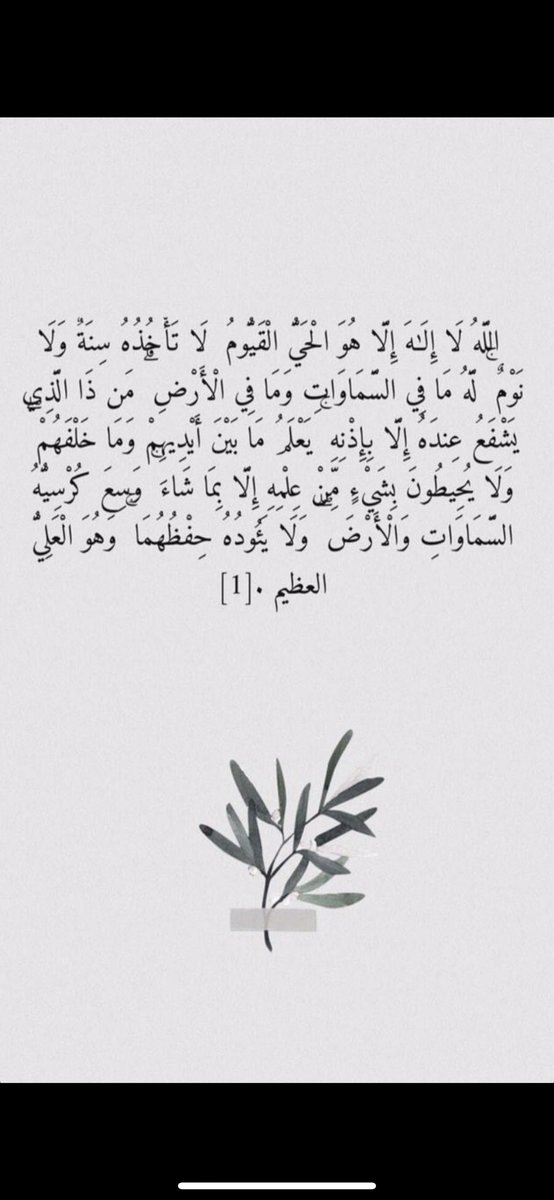 اللَّهُ لَا إِلَـٰهَ إِلَّا هُوَ الْحَيُّ الْقَيُّومُ ۚ لَا تَأْخُذُهُ سِنَةٌ وَلَا
نَوْمٌ ۚ لَّهُ مَا فِي السَّمَاوَاتِ وَمَا فِي الْأَرْضِ ۗ مَن ذَا الَّذِي
يَشْفَعُ عِندَهُ إِلَّا بِإِذْنِهِ ۚ يَعْلَمُ مَا بَيْنَ أَيْدِيهِمْ وَمَا خَلْفَهُمْ ۖ
وَلَا يُحِيطُونَ بِشَيْءٍ مِّنْ عِلْمِهِ إِلَّا بِمَا شَاءَ ۚ وَسِعَ كُرْسِيُّهُ
السَّمَاوَاتِ وَالْأَرْضَ ۖ وَلَا يَئُودُهُ حِفْظُهُمَا ۚ وَهُوَ الْعَلِيُّ
العظيم .[1]